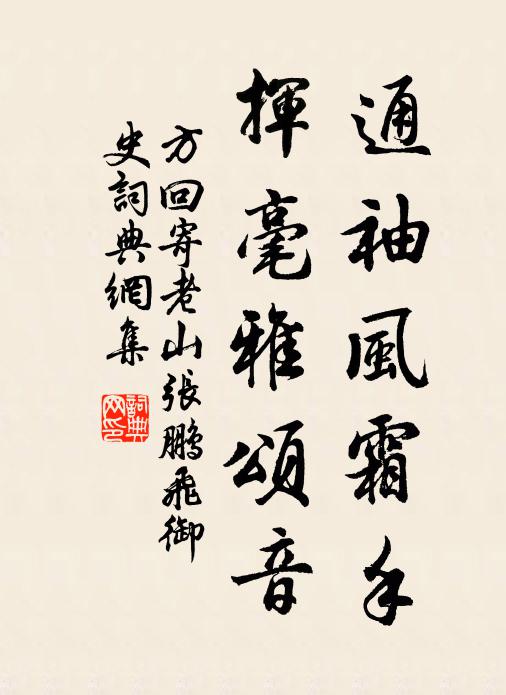 通袖風霜手
揮毫雅頌音
方回寄老山張鵬飛御
史詞典網集
詞典
网印